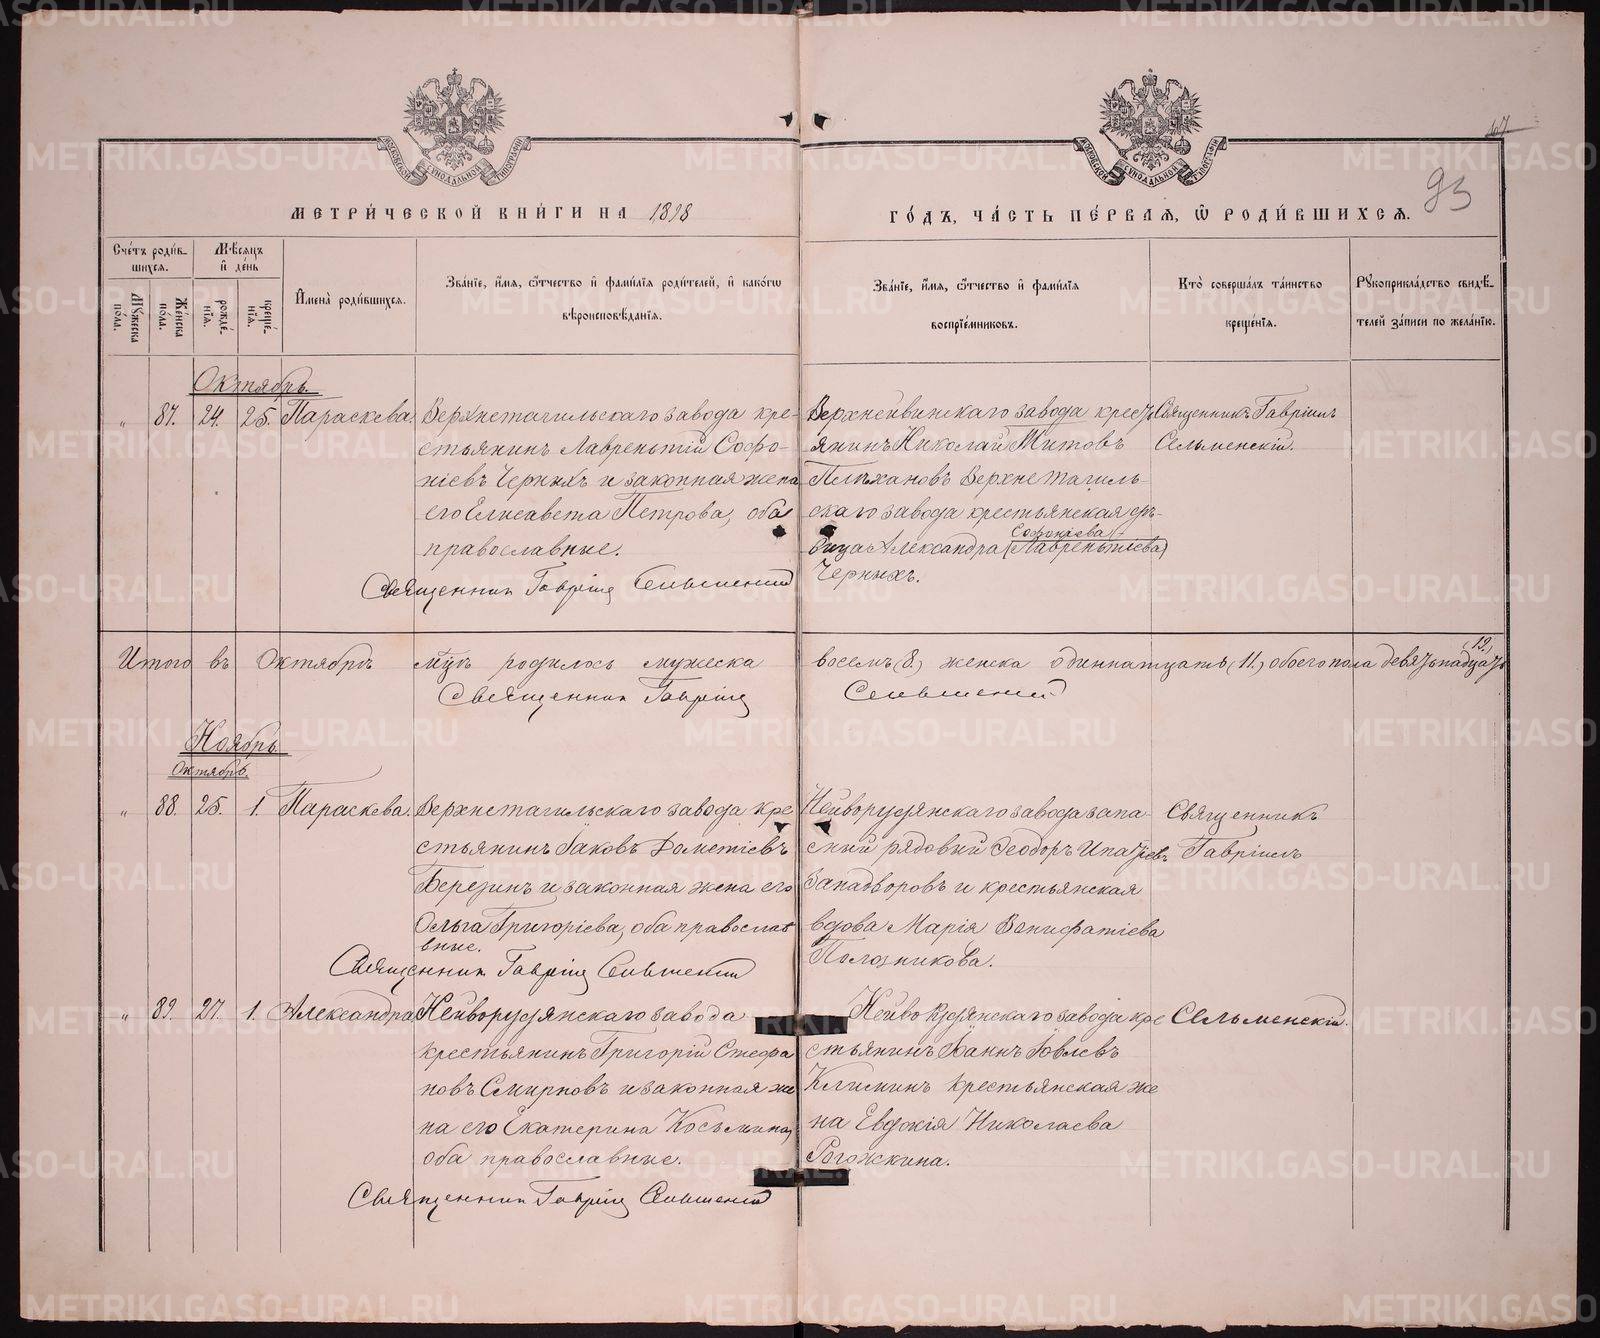 МЕТРИ́ЧЕСКОЙ КНИ́ГИ НА 1898
ГО́ДЪ, ЧА́СТЬ ПЕ́РВАѦ, Ѽ РОДИ́ВШИХСѦ.
93
Сче́тъ роди́в-
шихсѧ.
Му́жеска по́ла.
Же́нска по́ла.
Мѣ́сѧцъ
и҆ де́нь
рожде́-
нїѧ.
креще́-
нїѧ.
И҆мена̀ роди́вшихсѧ.
Зва́нїе, и҆́мѧ, ѻ҆́тчество и҆ фами́лїѧ роди́телей, и҆ како́гѡ
вѣроисповѣ́данїѧ.
Зва́нїе, и҆́мѧ, ѻ҆́тчество и҆ фами́лїѧ
воспрїе́мниковъ.
Кто̀ соверша́лъ та́инство
креще́нїѧ.
Рукоприкла́дство свидѣ́-
телей за́писи по жела́нїю.
Октябрь.
„ 87. 24. 25. Параскева.
Верхнетагильскаго завода кре-
стьянинъ Лаврентій Софо-
ніевъ Черныхъ и законная жена
его Елисавета Петрова, оба
православные.
Священник Гавріил Сельменский
Верхнейвинскаго завода кресть
янинъ Николай Титовъ
Плѣхановъ Верхнетагиль-
скаго завода крестьянская дѣ-
Софоніева
вица Александра (Лаврентіева)
Черныхъ.
Священникъ Гавріилъ
Сельменскій.
Итого въ Октябрѣ мцѣ родилось мужеска
восемъ (8.) женска одиннатцать (11.) обоего пола девятьнадцать
(19.)
Священник Гавріил
Сельменский
Ноябрь
Октябрь.
„ 88. 25. 1. Параскева.
Верхнетагильскаго завода кре
стьянинъ Іаковъ Дометіевъ
Березинъ и законная жена его
Ольга Григоріева, оба православ
вные.
Священник Гавріил Сельменский
Нейворудянскаго завода запа-
сный рядовый Феодоръ Ипатіевъ
Западворовъ и крестьянская
вдова Марія Вонифатіева
Полозникова.
Священникъ
Гавріилъ
„ 89. 27. 1. Александра
Нейворудянскаго завода
крестьянинъ Григорій Стефа
новъ Смирновъ и законная же
на его Екатерина Косьмина,
оба православные.
Священник Гавріил Сельменский
Нейворудянскаго завода кре
стьянинъ Іоаннъ Іовлевъ
Климинъ крестьянская же
на Евдокія Николаева
Рогожкина.
Сельменскій.
METRIKI.GASO-URAL.RU